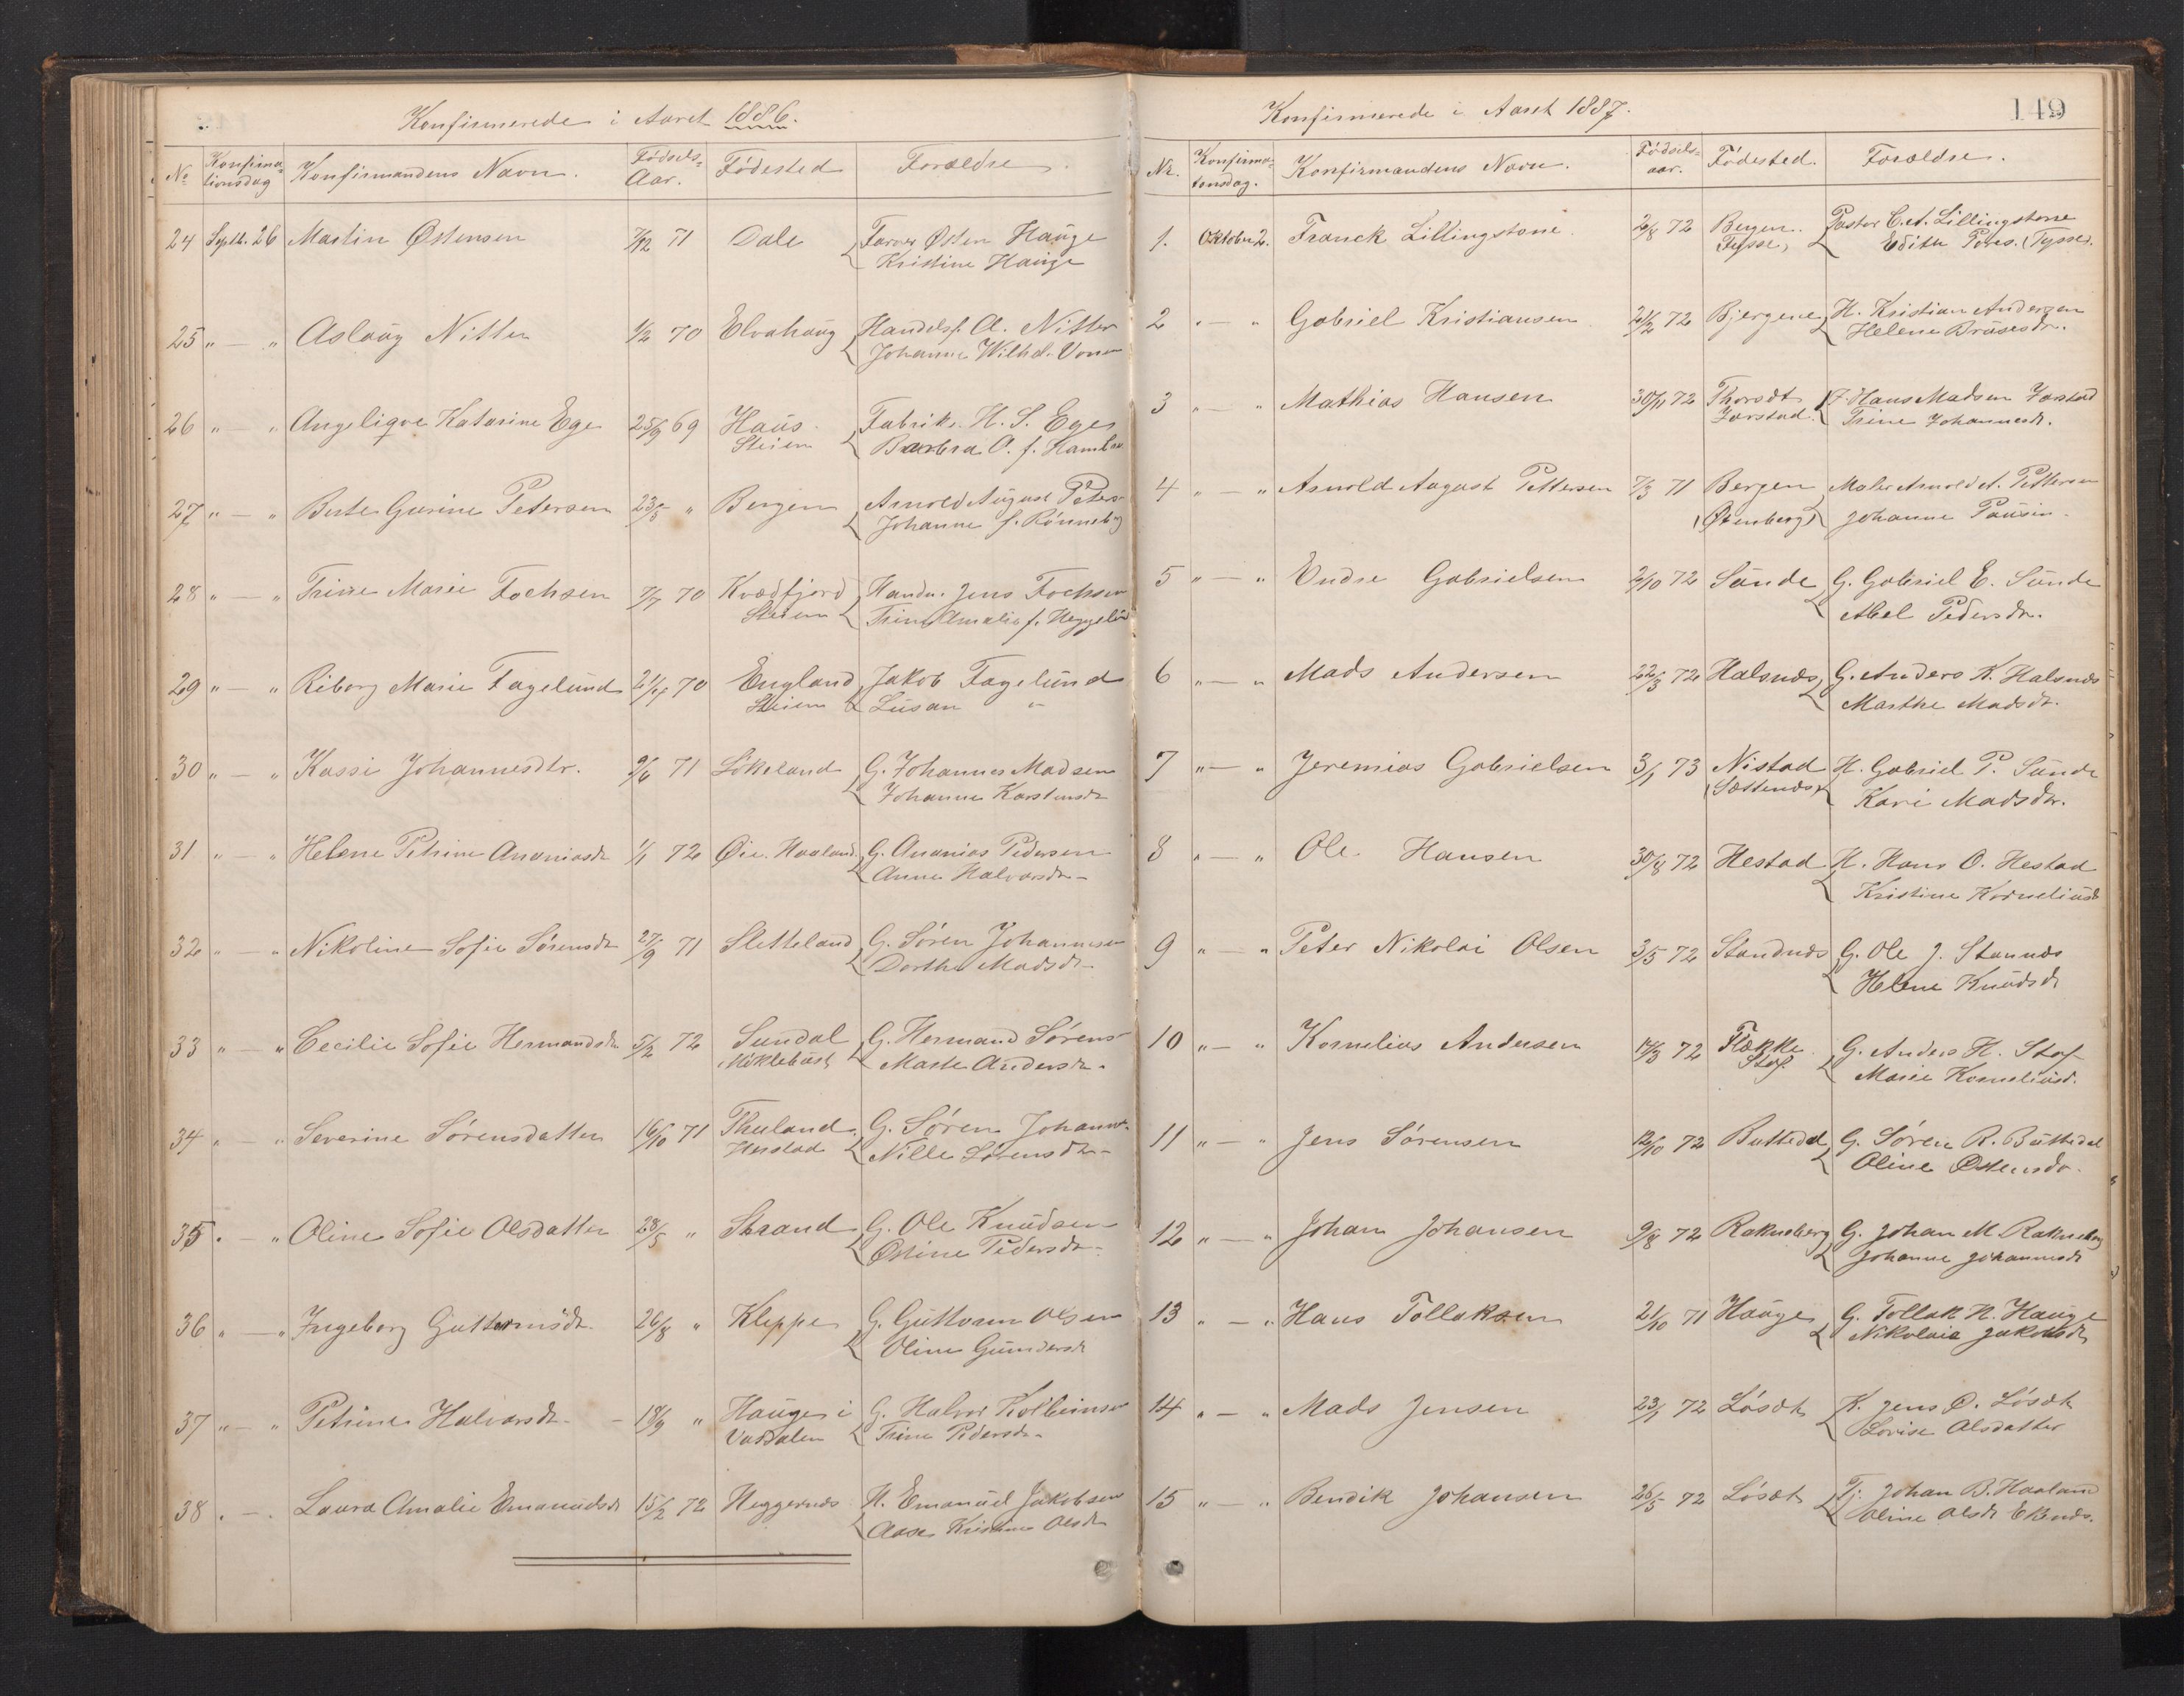 Konfirmerede i Aaret 1886.
No Konfirma-tionsdag Konfirmandens Navn. Fødsels-Aar. Fødested Forældre.
24 Septb. 26 Martin Østensen 7/12 71 Dale Farver Østen Hauge
Kristine Hauge
25 " — " Aslaug Nitter 1/2 70 Elvahaug Handelsf. A. Nitter
Johanne Wilhel. Vonen
26 " " Angeliqve Katarine Ege 25/9 69 Haus Fabrik. H. S. Ege
Steien Barbra O. f. Hamb
27 " — " Berte Gurine Petersen 23/5 " Bergen Arnold August Peters
Johanne f. Rønneb
28 " — " Trine Marie Fochsen 7/7 70 Kvædfjord Handm. Jens Fochsen
Steien Trine Amalie f. Heggel
29 " — " Riborg Marie Fagelund 70 England Jakob Fagelund
Steien Susan "
30 " — " Kassi Johannesdtr. 9/6 71 Løkeland G. Johannes Madsen
Johanne Karstensdr
31 " — " Helene Petrine Ananiasdr 1/1 72 Øie. Haaland. G. Ananias Pedersen
Anne Halvorsdr
32 " — " Nikoline Sofie Sørensdr 27/9 71 Sletteland G. Søren Johannesen
Dorthe Madsdr
33 " — " Cecilie Sofie Hermandsdr 5/2 72 Sundal G. Hermand Sørens
Miklebust Marte Andersdr.
34 " — " Severine Sørensdatter 16/10 71 Thuland G. Søren Johann
Herstad Nille Sørensdr
35 . — " Oline Sofie Olsdatter 28/5 " Strand G. Ole Knudsen
Østine Pedersdr.
36 " — " Ingeborg Guttormsdr 26/8 " Kleppe G. Guttorm Olsen
Oline Gundersdr
37 " — " Petrine Halvorsdr. 18/9 " Hauge i G. Halvor Kolbeinsen
Vasdalen Trine Pedersdr.
38 . — . Laura Amalie Emanuelsdr 15/2 72 Heggernæs H. Emanuel Jakobsen
Aase Kristine Olsdr
149
Konfirmerede i Aaret 1887.
Nr. Konfirma-tonsdag. Konfirmandens Navn. Fødsels-aar. Fødested. Forældre.
1. Oktober 2. Franck Lillingstone. 2/8 72 Bergen. Pastor C. A. Lillingstone
Tysse, Edith (Tysse).
2 " — " Gabriel Kristiansen 72 Bjergene H. Kristian Andersen
Helene
3 " — " Mathias Hansen 30/11 72 Thorsdt. Hans Madsen Jarstad
Jarstad. Trine Johannesdr.
4 " — " Arnold August Pettersen 7/3 71 Bergen Maler Arnold A. Pettersen
Johanne
5 " — " Endre Gabrielsen 2/10 72 Sunde G. Gabriel E. Sunde
Abel Pedersdr.
6 " — " Mads Andersen 22/3 72 Halsnæs G. Anders K. Halsnæs
Marthe Madsdr.
7 " — " Jeremias Gabrielsen 3/1 73 Nistad H. Gabriel P. Sunde
(Sættenæs) Kari Madsdr.
8 " — " Ole Hansen 30/8 72 Hestad H. Hans O. Hestad
Kristine Korneliusdr
9 " — " Peter Nikolai Olsen 3/5 72 Standnæs G. Ole J. Stannæs
Helene Knudsdr
10 " — " Kornelius Andersen 72 Flække G. Anders H. Staf
Staf. Marie Korneliusd.
11 " — " Jens Sørensen 12/10 72 Buttedal G. Søren R. Buttedal
Oline Østensdr.
12 " — " Johan Johansen 9/8 72 Rakneberg G. Johan M. Rakneberg
Johanne Johannesdr
13 " — " Hans Tollaksen 21/10 71 Hauge G. Tollak H. Hauge
Nikolaia Jakobsdr
14 " — " Mads Jensen 23/1 72 Løsæt K. Jens D. Løsæt
Lovise Olsdatter
15 " — " Bendik Johansen 26/5 72 Løsæt Tj. Johan B. Haaland
Oline Olsdr Ekenæs.